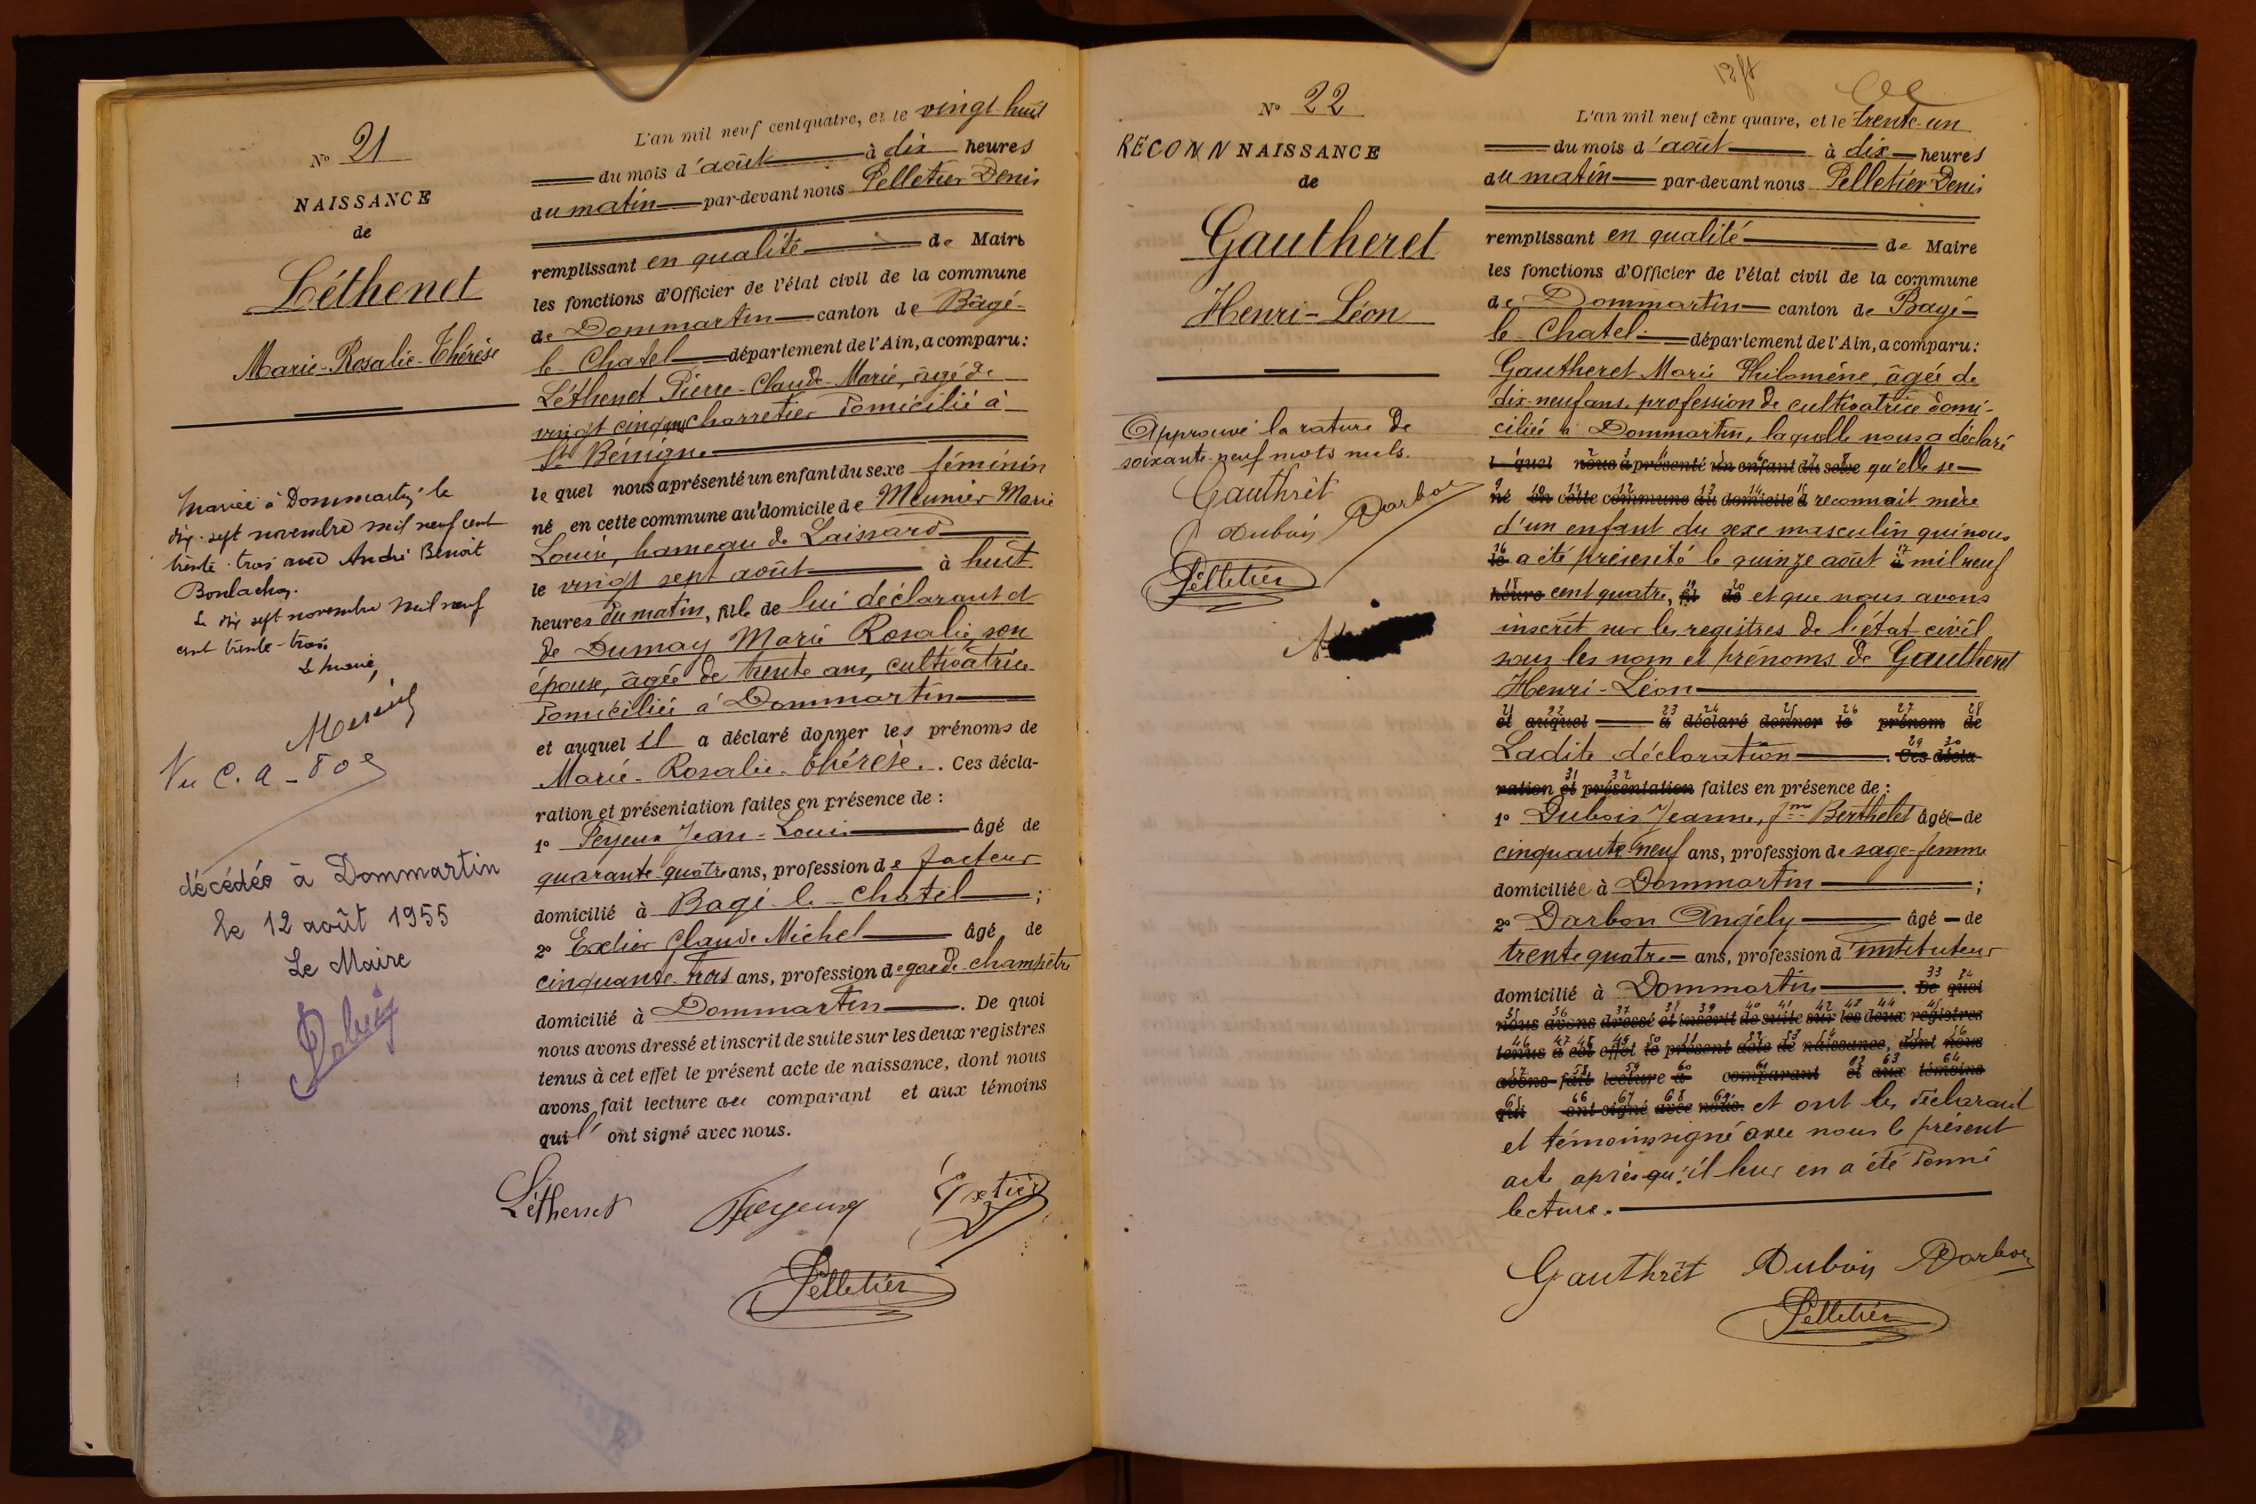 N° 21
NAISSANCE
de
Léthenet
Marie-Rosalie-Thérèse
Mariée à Dommartin le
dix-sept novembre mil neuf cent
trente-trois avec André Benoît
Le dix sept novembre mil neuf
cent trente-trois
Le Maire,
Vu C. A - 80e
décédée à Dommartin
le 12 août 1955
Le Maire
L'an mil neuf cent quatre, et le vingt huit
du mois d'août à dix heures
du matin par-devant nous Pelletier Denis
remplissant en qualité de Maire
les fonctions d'Officier de l'état civil de la commune
de Dommartin canton de Bâgé-
le Chatel département de l'Ain, a comparu:
Léthenet Pierre-Claude-Marie, âgé de
vingt cinq ans charretier domicilié à
St Bénigne
le quel nous a présenté un enfant du sexe féminin
né en cette commune au domicile de Meunier Marie
Louise, hameau de Laissard
le vingt sept août à huit
heures du matin, fils de lui déclarant et
de Dumay Marie Rosalie, son
épouse, âgée de trente ans, cultivatrice
domiciliée à Dommartin
et auquel il a déclaré donner les prénoms de
Marie-Rosalie-Thérèse. . Ces décla-
ration et présentation faites en présence de :
1° Feyeux Jean-Louis âgé de
quarante-quatre ans, profession de facteur
domicilié à Bagé-le-Chatel ;
2° Extier Claude Michel âgé de
cinquante-trois ans, profession de garde-champêtre
domicilié à Dommartin . De quoi
nous avons dressé et inscrit de suite sur les deux registres
tenus à cet effet le présent acte de naissance, dont nous
avons fait lecture au comparant et aux témoins
qui ont signé avec nous.
Léthenet Feyeux Extier
Pelletier
N° 22
RECONNNAISSANCE
de
Gautheret
Henri-Léon
Approuvé la rature de
soixante-neuf mots nuls.
Gauthrèt
Dubois Darbon
Pelletier
L'an mil neuf cent quatre, et le trente-un
du mois d'août à dix heures
du matin par-devant nous Pelletier Denis
remplissant en qualité de Maire
les fonctions d'Officier de l'état civil de la commune
de Dommartin canton de Bagé-
le Chatel département de l'Ain, a comparu:
Gautheret Marie Philomène, âgée de
dix-neuf ans, profession de cultivatrice domi-
ciliée à Dommartin, laquelle nous a déclaré
le quel nous a présenté un enfant du sexe qu'elle se
né en cette commune au domicile d reconnait mère
d'un enfant du sexe masculin qui nous
le a été présenté le quinze août à mil neuf
heure cent quatre, fil de et que nous avons
inscrit sur les registres de l'état civil
sous les nom et prénoms de Gautheret
Henri-Léon
et auquel a déclaré donner le prénom de
Ladite déclaration . Ces décla
ration et présentation faites en présence de :
1° Dubois Jeanne, fme Berthelet âgée de
cinquante neuf ans, profession de sage-femme
domiciliée à Dommartin ;
2° Darbon Angély âgé de
trente quatre ans, profession d'instituteur
domicilié à Dommartin . De quoi
nous avons dressé et inscrit de suite sur les deux registres
tenus à cet effet le présent acte de naissance, dont nous
avons fait lecture a comparant et aux témoins
qui ont signé avec nous. et ont les déclarant
et témoins signé avec nous le présent
acte après qu'il leur en a été donné
lecture.
Gauthrèt Dubois Darbon
Pelletier